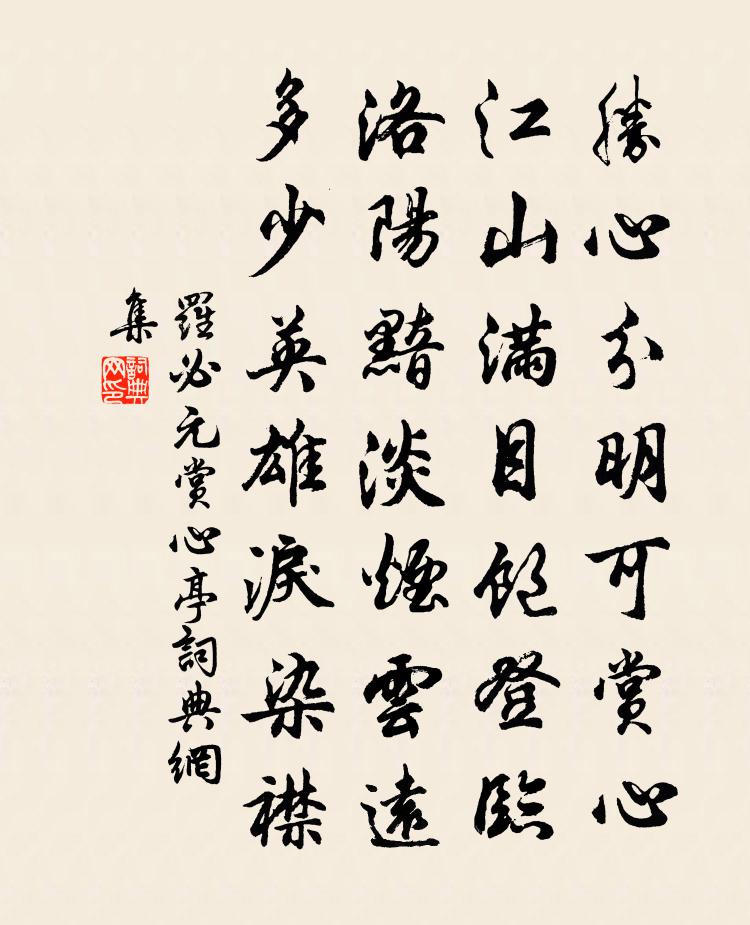 勝心分明可賞心
江山滿目飽登臨
洛陽黯淡煙雲遠
多少英雄淚染襟
羅必元賞心亭詞典網
集
詞典網印